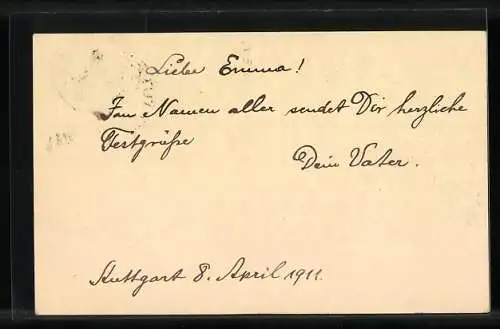 Liebe Emma!
Im Namen aller sendet Dir herzliche
Festgrüße
Dein Vater.
Stuttgart 8. April 1911.